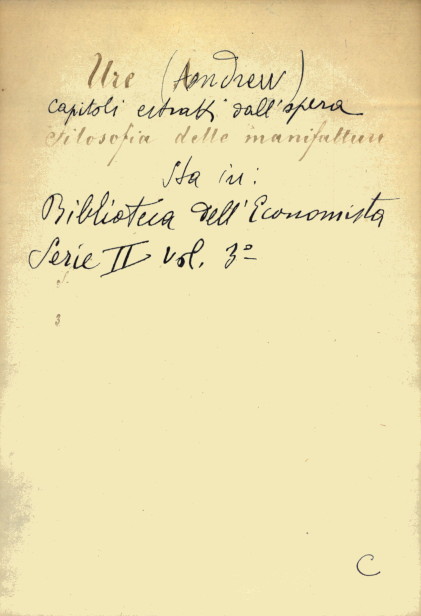 Ure (Andrew)
capitoli estratti dall'opera
Filosofia delle manifatture
Sta in:
Biblioteca dell'Economista
Serie II vol. 3º
3
C